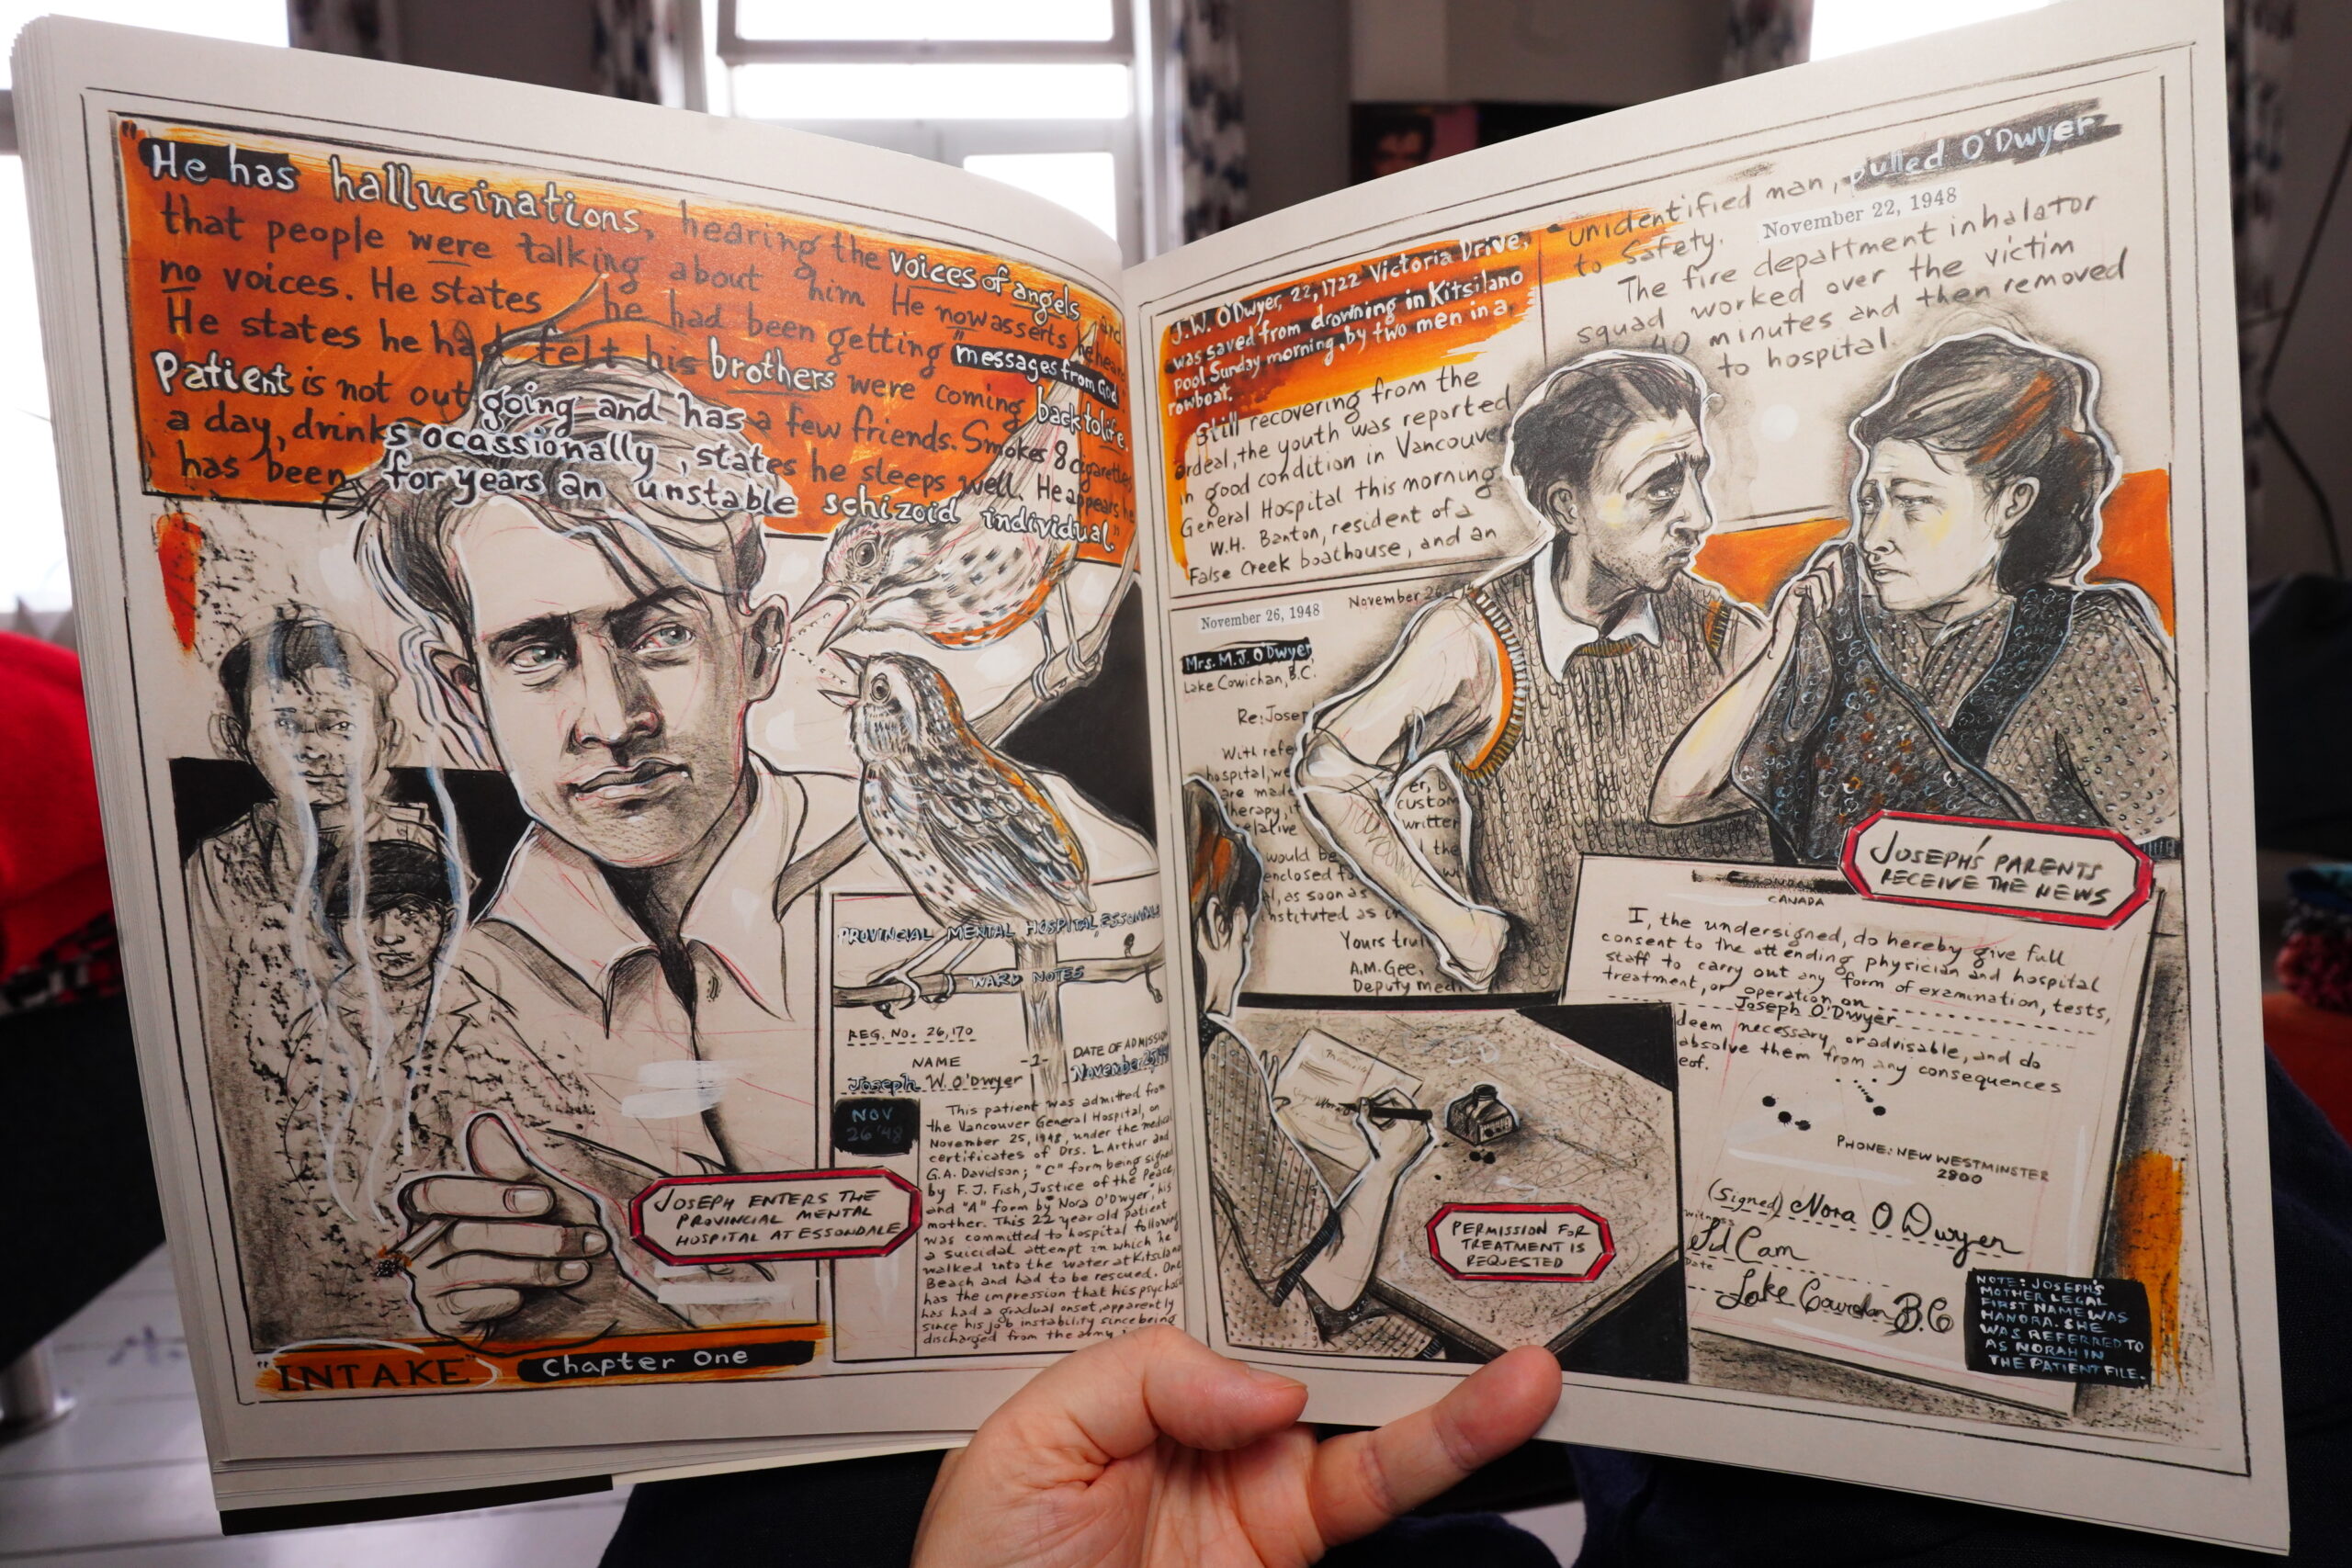 "He has hallucinations, hearing the voices of angels and
that people were talking about him. He now asserts he hears
no voices. He states he had been getting "messages from God".
He states he had felt his brothers were coming back to life.
Patient is not out going and has a few friends. Smokes 8 cigarettes
a day, drinks ocassionally, states he sleeps well. He appears he
has been for years an unstable schizoid individual."
PROVINCIAL MENTAL HOSPITAL, ESSONDALE
WARD NOTES
REG. No. 26,170
NAME -1- DATE OF ADMISSION
Joseph W. O'Dwyer November 25,
NOV
26 '48
This patient was admitted from
the Vancouver General Hospital, on
November 25, 1948, under the medical
certificates of Drs. L Arthur and
G.A. Davidson; "C" form being signed
by F. J. Fish, Justice of the Peace,
and "A" form by "Nora O'Dwyer", his
mother. This 22 year old patient
was committed to hospital following
a suicidal attempt in which he
walked into the water at Kitsilano
Beach and had to be rescued. One
has the impression that his psychosis
has had a gradual onset, apparently
since his job instability since being
discharged from the army
JOSEPH ENTERS THE
PROVINCIAL MENTAL
HOSPITAL AT ESSONDALE
"INTAKE" Chapter One
J.W. O'Dwyer, 22, 1722 Victoria Drive,
was saved from drowning in Kitsilano
pool Sunday morning, by two men in a
rowboat.
Still recovering from the
ordeal, the youth was reported
in good condition in Vancouver
General Hospital this morning
W.H. Banton, resident of a
False Creek boathouse, and an
unidentified man, pulled O'Dwyer
to safety. November 22, 1948
The fire department inhalator
squad worked over the victim
40 minutes and then removed
to hospital.
November 26, 1948 November 26
Mrs. M.J. O'Dwyer
Lake Cowichan, B.C.
Re: Josep
With refe
hospital, we
are made er, b
therapy, it custom
elative writter
would be d the
enclosed fo
l, as soon as
nstituted as
Yours trul
A.M. Gee,
Deputy medi
JOSEPH'S PARENTS
RECEIVE THE NEWS
ESSONDALE
CANADA
I, the undersigned, do hereby give full
consent to the attending physician and hospital
staff to carry out any form of examination, tests,
treatment, or operation on
Joseph O'Dwyer
deem necessary or advisable, and do
absolve them from any consequences
eof.
PHONE: NEW WESTMINSTER
2800
(Signed) Nora O Dwyer
Witness
Sd Cam
Date
Lake Cowichan B.C
PERMISSION FOR
TREATMENT IS
REQUESTED
NOTE: JOSEPH'S
MOTHER LEGAL
FIRST NAME WAS
HANORA. SHE
WAS REFERRED TO
AS NORAH IN
THE PATIENT FILE.